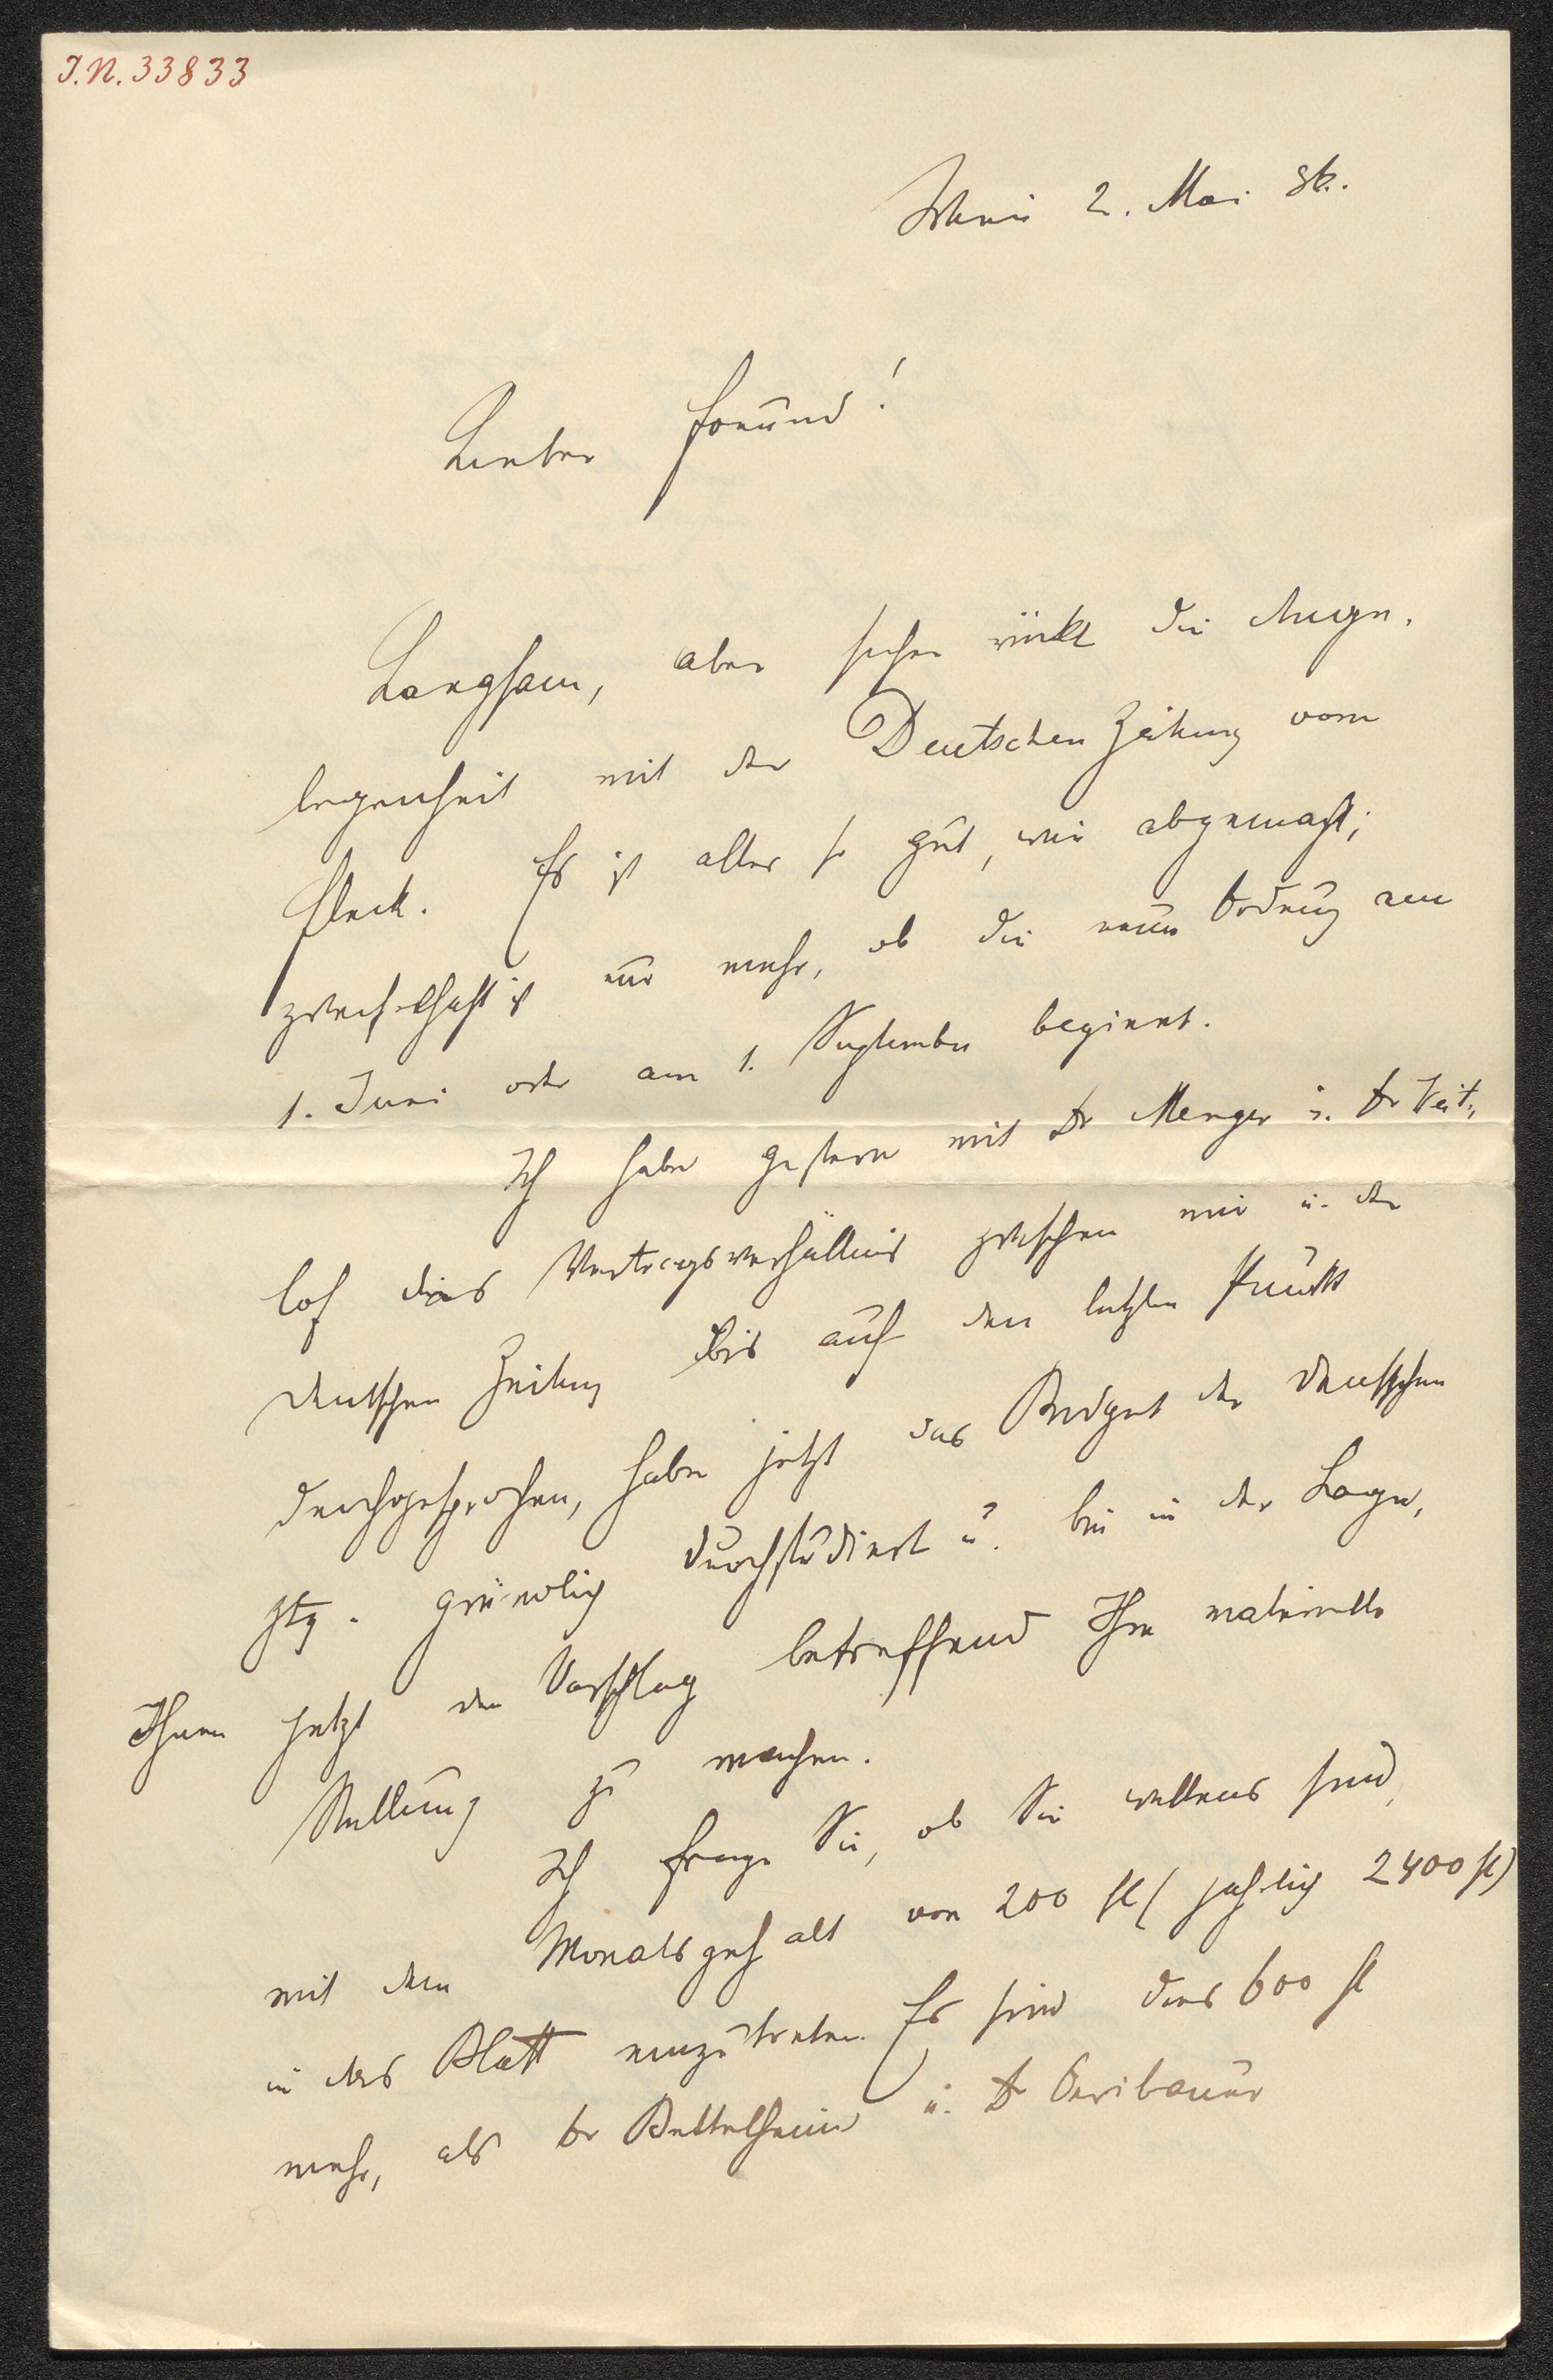 J.N. 33833
Wien 2. Mai 86.
Lieber Freund!
Langsam, aber sicher rückt die Ange-
legenheit mit der Deutschen Zeitung vom
Fleck. Es ist alles so gut, wie abgemacht;
zweifelhaft ist nur mehr, ob die neue Ordnung am
1. Juni oder am 1. September beginnt.
Ich habe gestern mit Dr Menger u. Dr Weit-
lof das Vertragsverhältnis zwischen mir u. der
Deutschen Zeitung bis auf den letzten Punkt
durchgesprochen, habe jetzt das Budget der Deutschen
Ztg. gründlich durchstudiert u. bin in der Lage,
Ihnen jetzt den Vorschlag betreffend Ihre materielle
Stellung zu machen.
Ich frage Sie, ob Sie willens sind,
mit dem Monatsgehalt von 200 fl (jährlich 2400 fl)
in das Blatt einzutreten. Es sind dies 600 fl
mehr, als Dr Bettelheim u. Dr